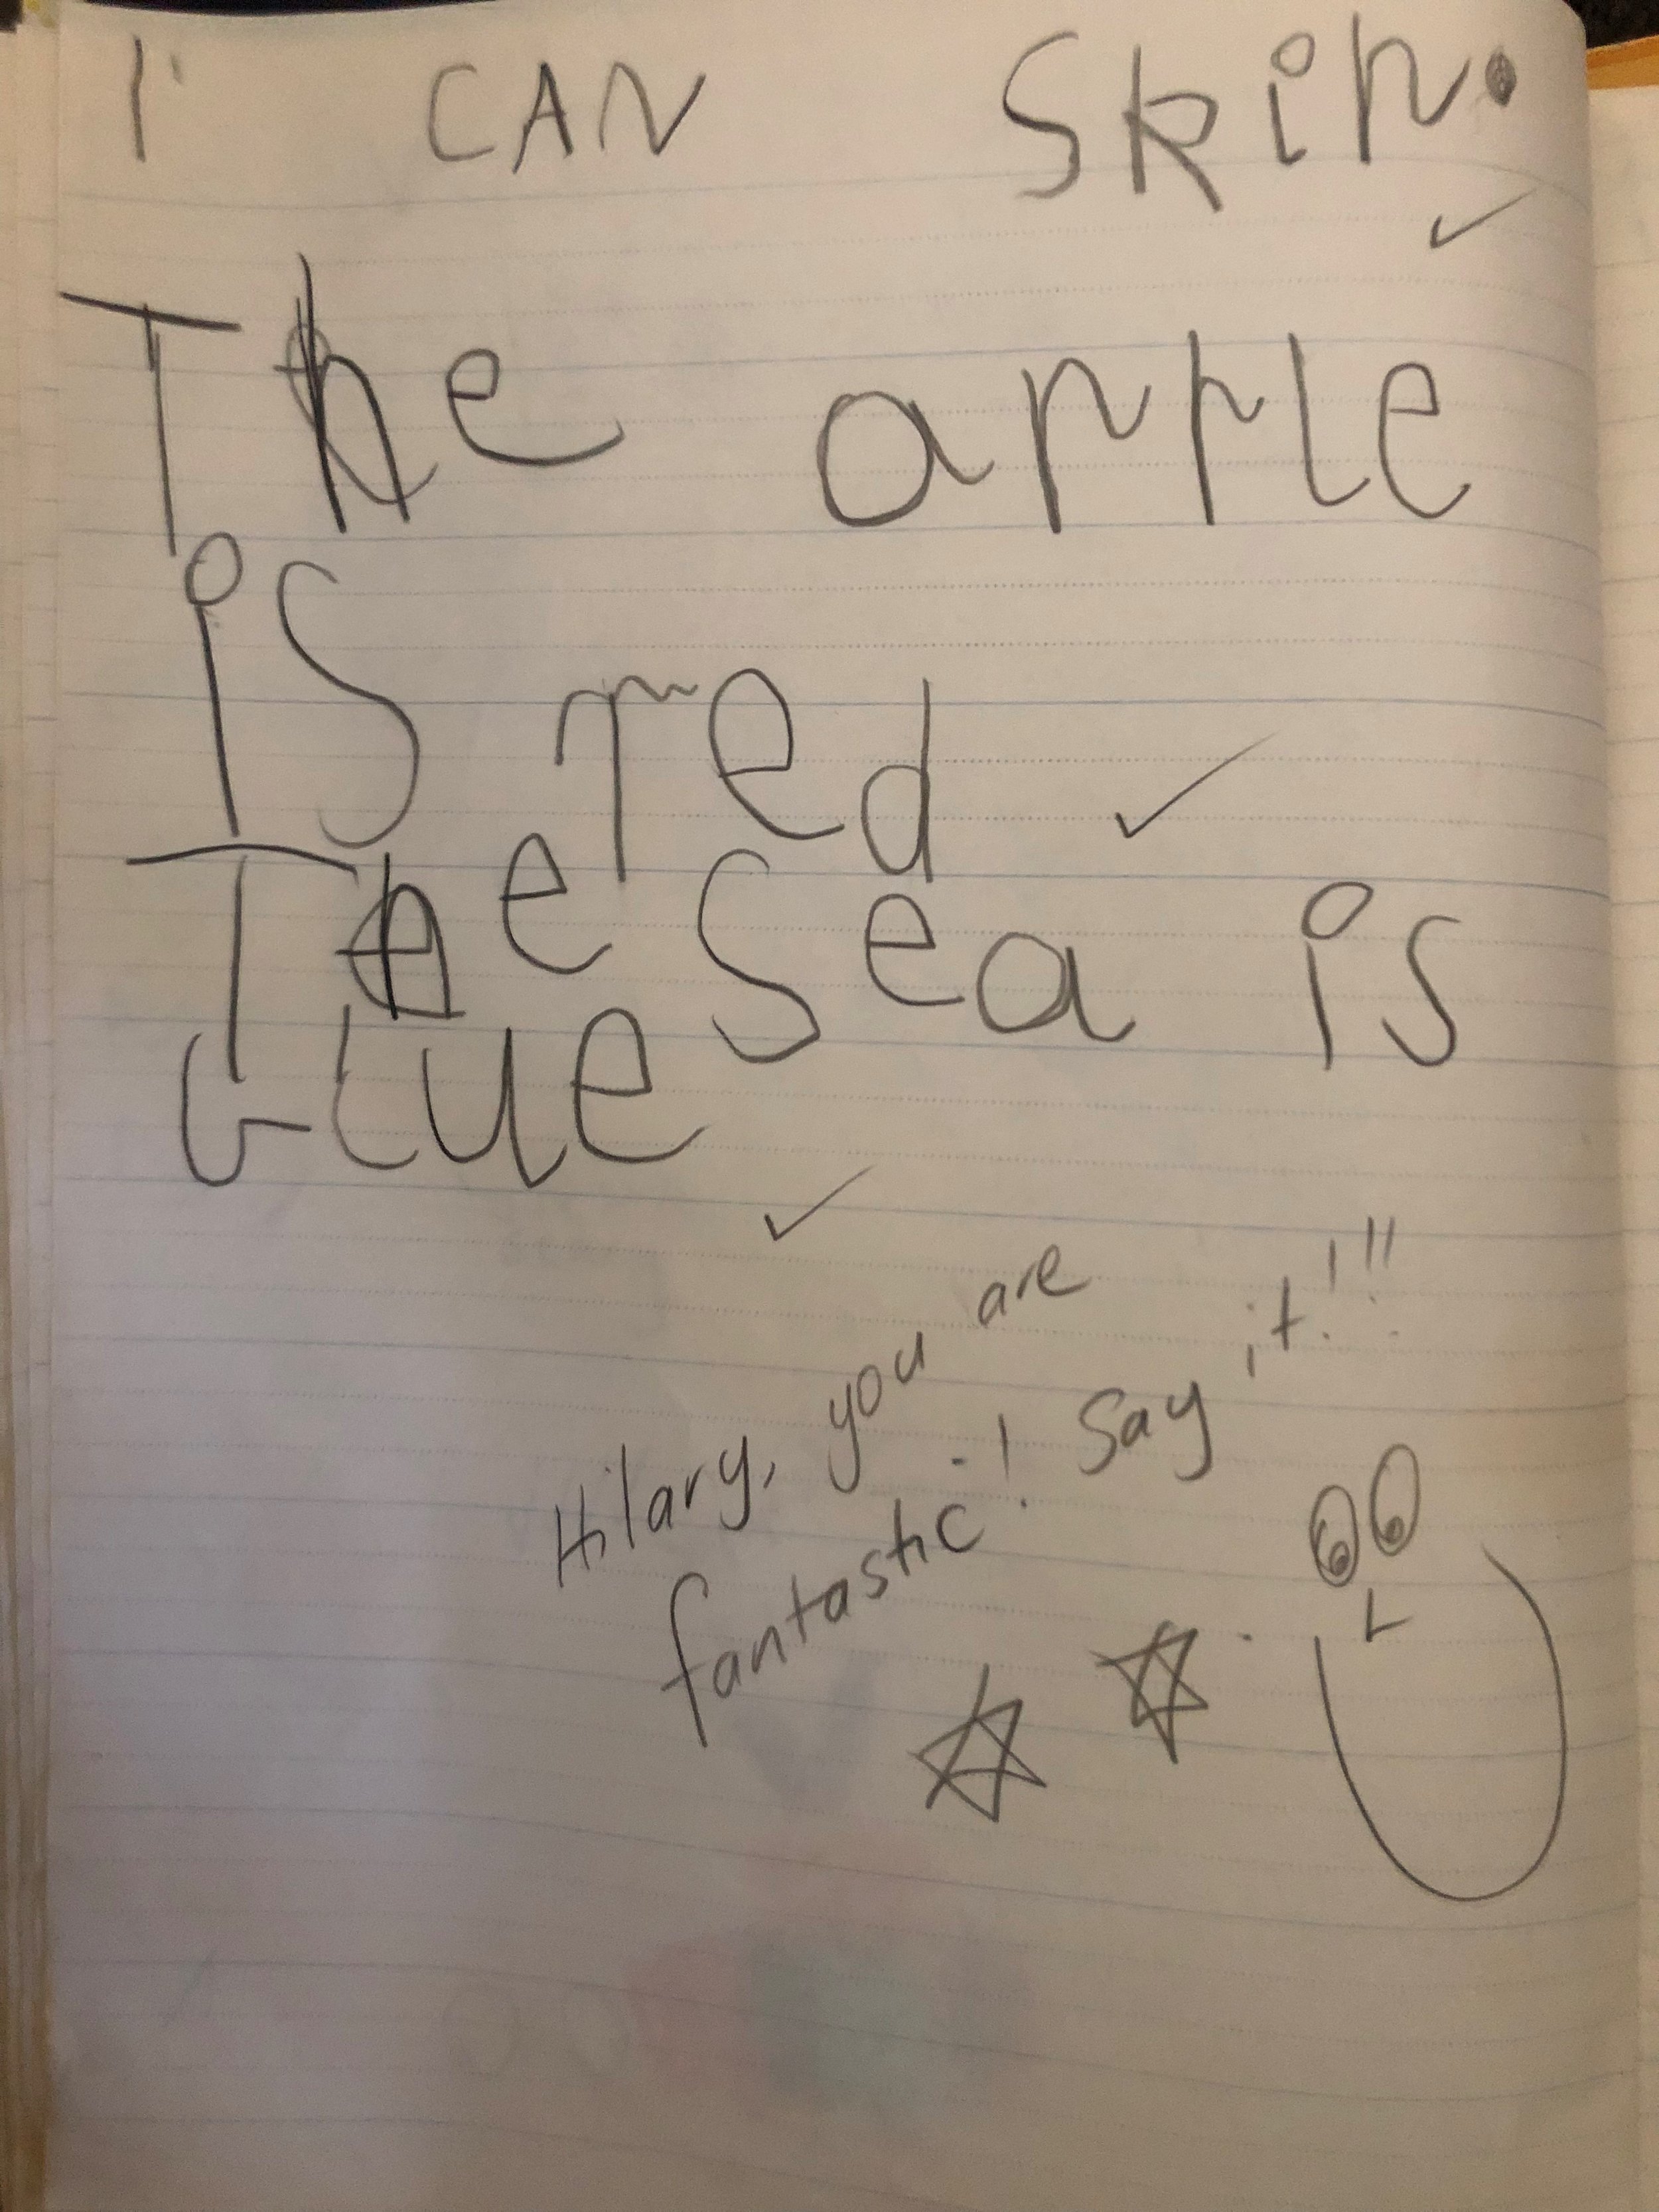 I CAN skip.
The apple
is red
The sea is
blue
Hilary, you are
fantastic! I say it!!!